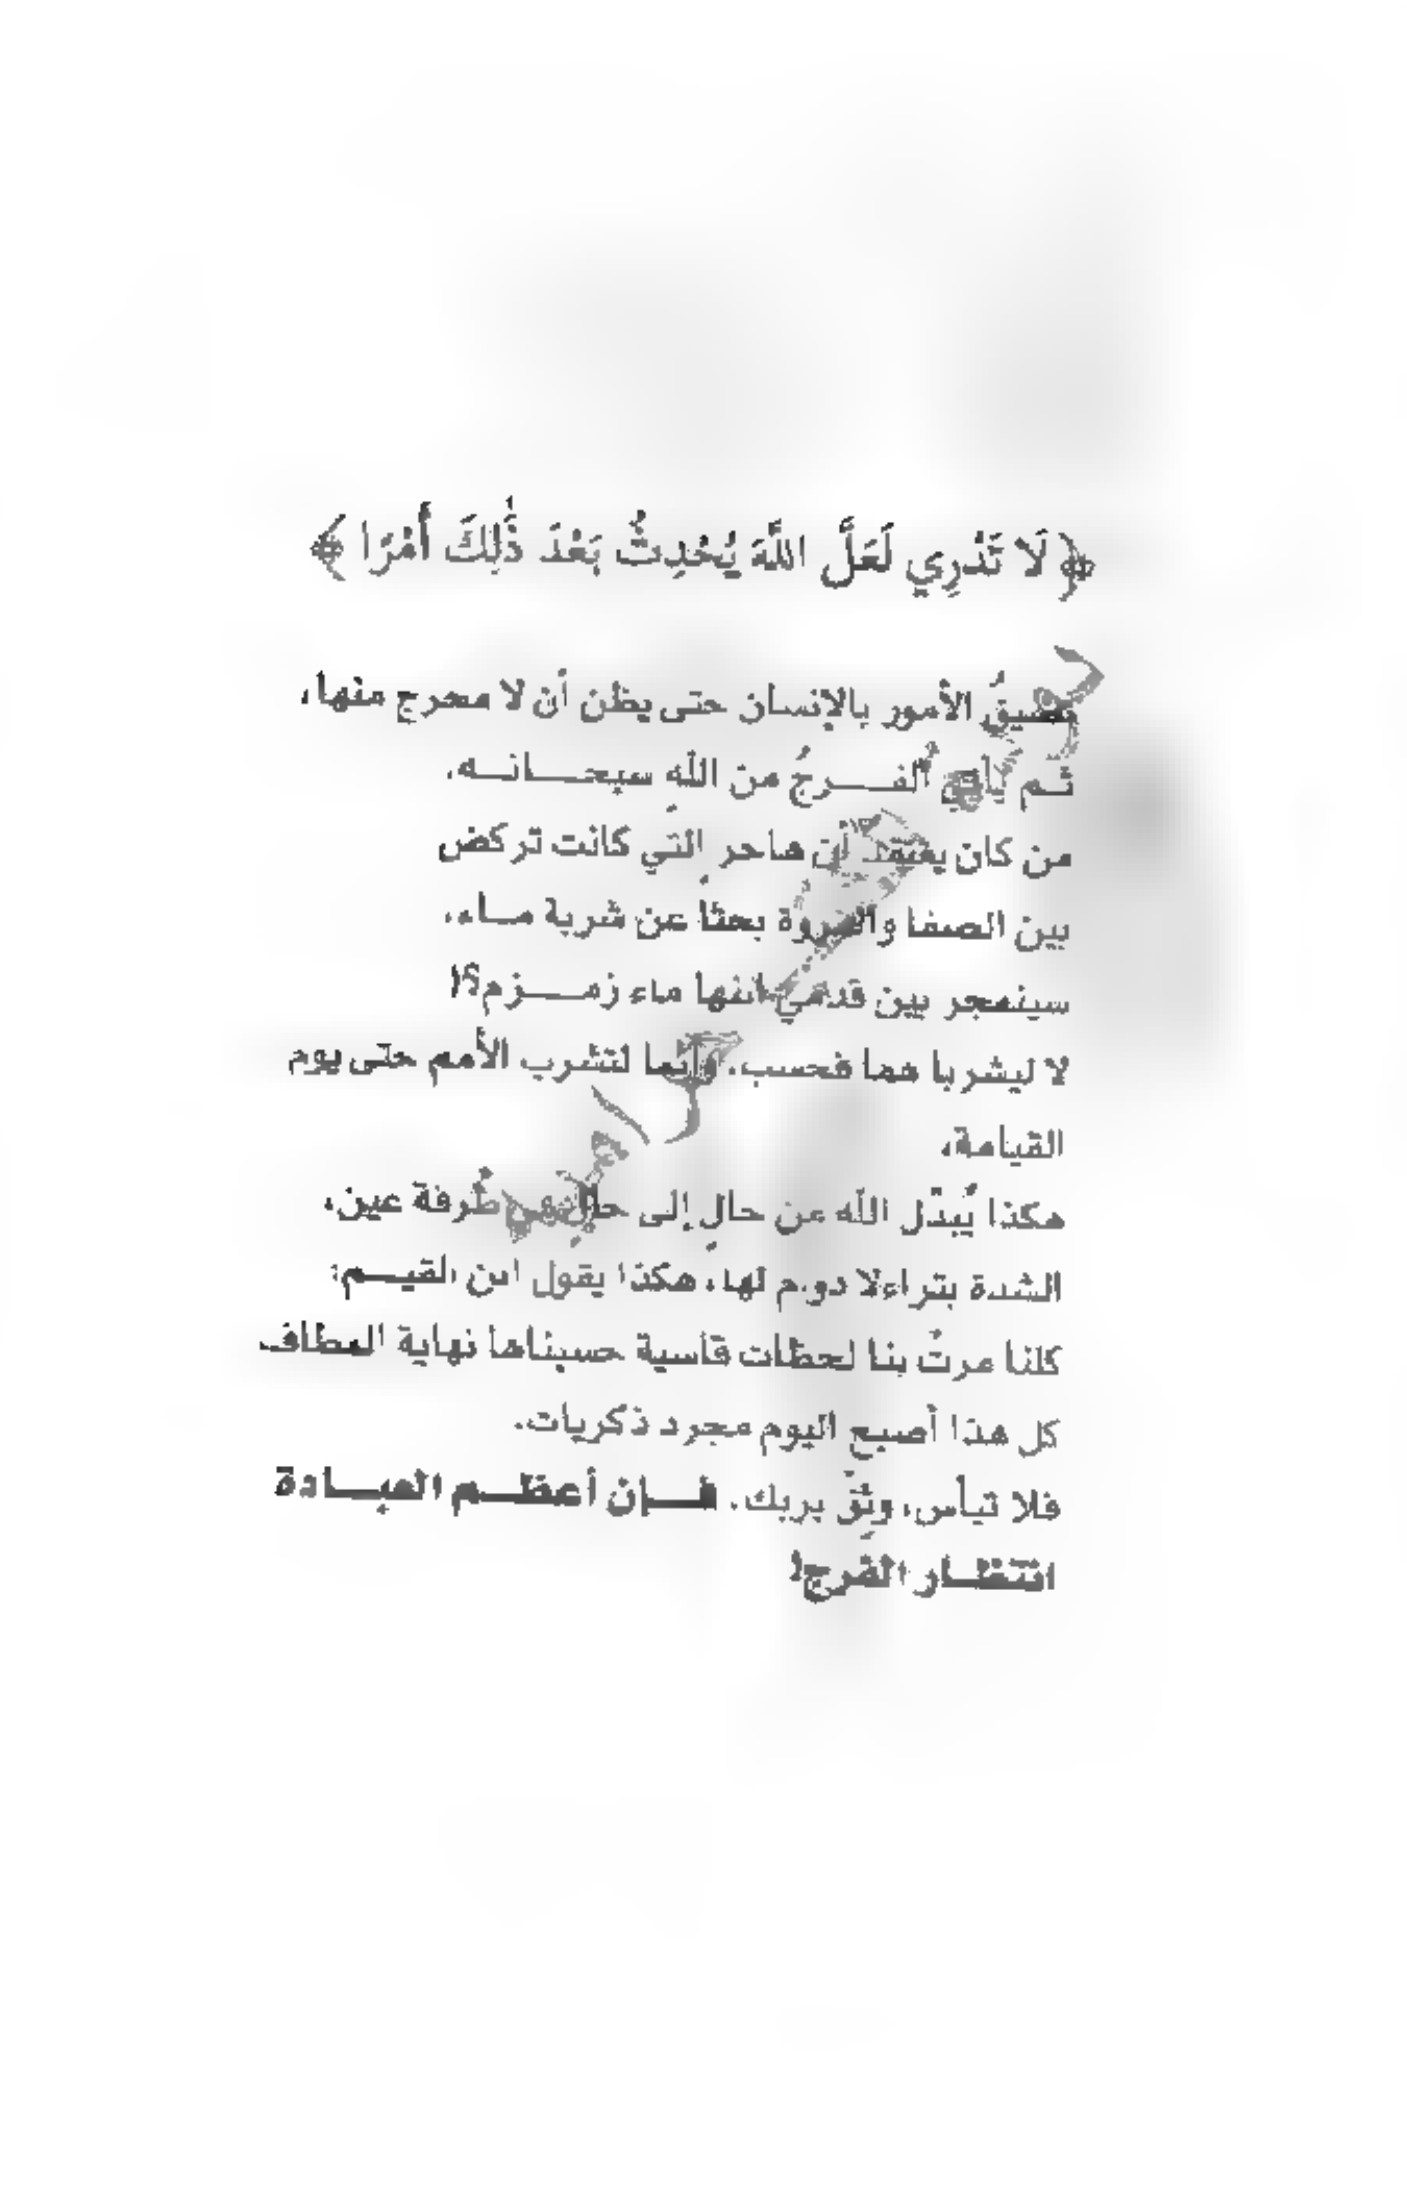 ﴿ لَا تَدْرِي لَعَلَّ اللَّهَ يُحْدِثُ بَعْدَ ذَٰلِكَ أَمْرًا ﴾
تضيقُ الأمور بالإنسان حتى يظن أن لا مخرج منها،
ثم يأتي الفرجُ من اللهِ سبحانه،
من كان يعتقد أن هاجر التي كانت تركض
بين الصفا والمروة بحثاً عن شربة ماء،
سينفجر بين قدمي ابنها ماء زمزم؟!
لا ليشربا هما فحسب، وإنما لتشرب الأمم حتى يوم
القيامة،
هكذا يُبدّل الله من حالٍ إلى حالٍ في طُرفة عين،
الشدة بتراء لا دوام لها، هكذا يقول ابن القيم:
كلنا مرتْ بنا لحظات قاسية حسبناها نهاية المطاف
كل هذا أصبح اليوم مجرد ذكريات.
فلا تيأس، وثِقْ بربك. فإن أعظم العبادة
انتظار الفرج!